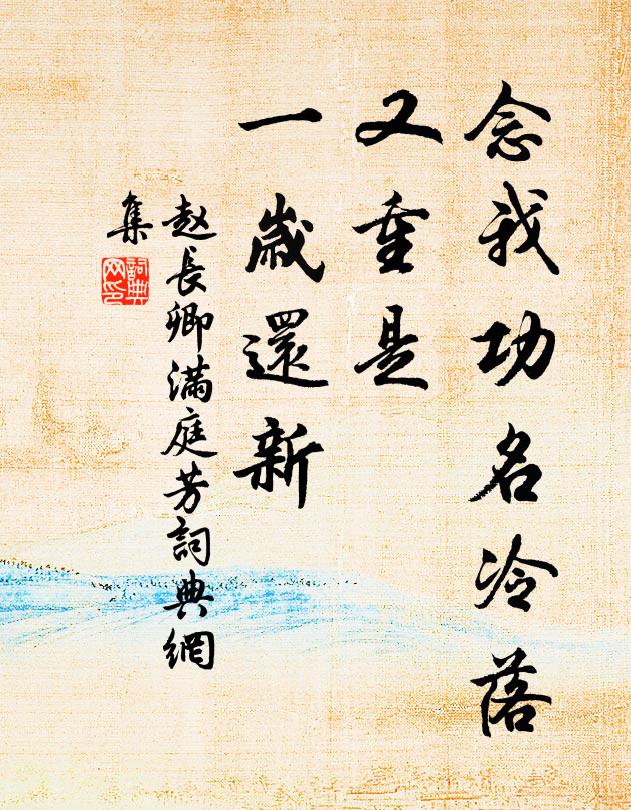 念我功名冷落
又重是
一歲還新
赵長卿滿庭芳詞典網
集
詞典网印